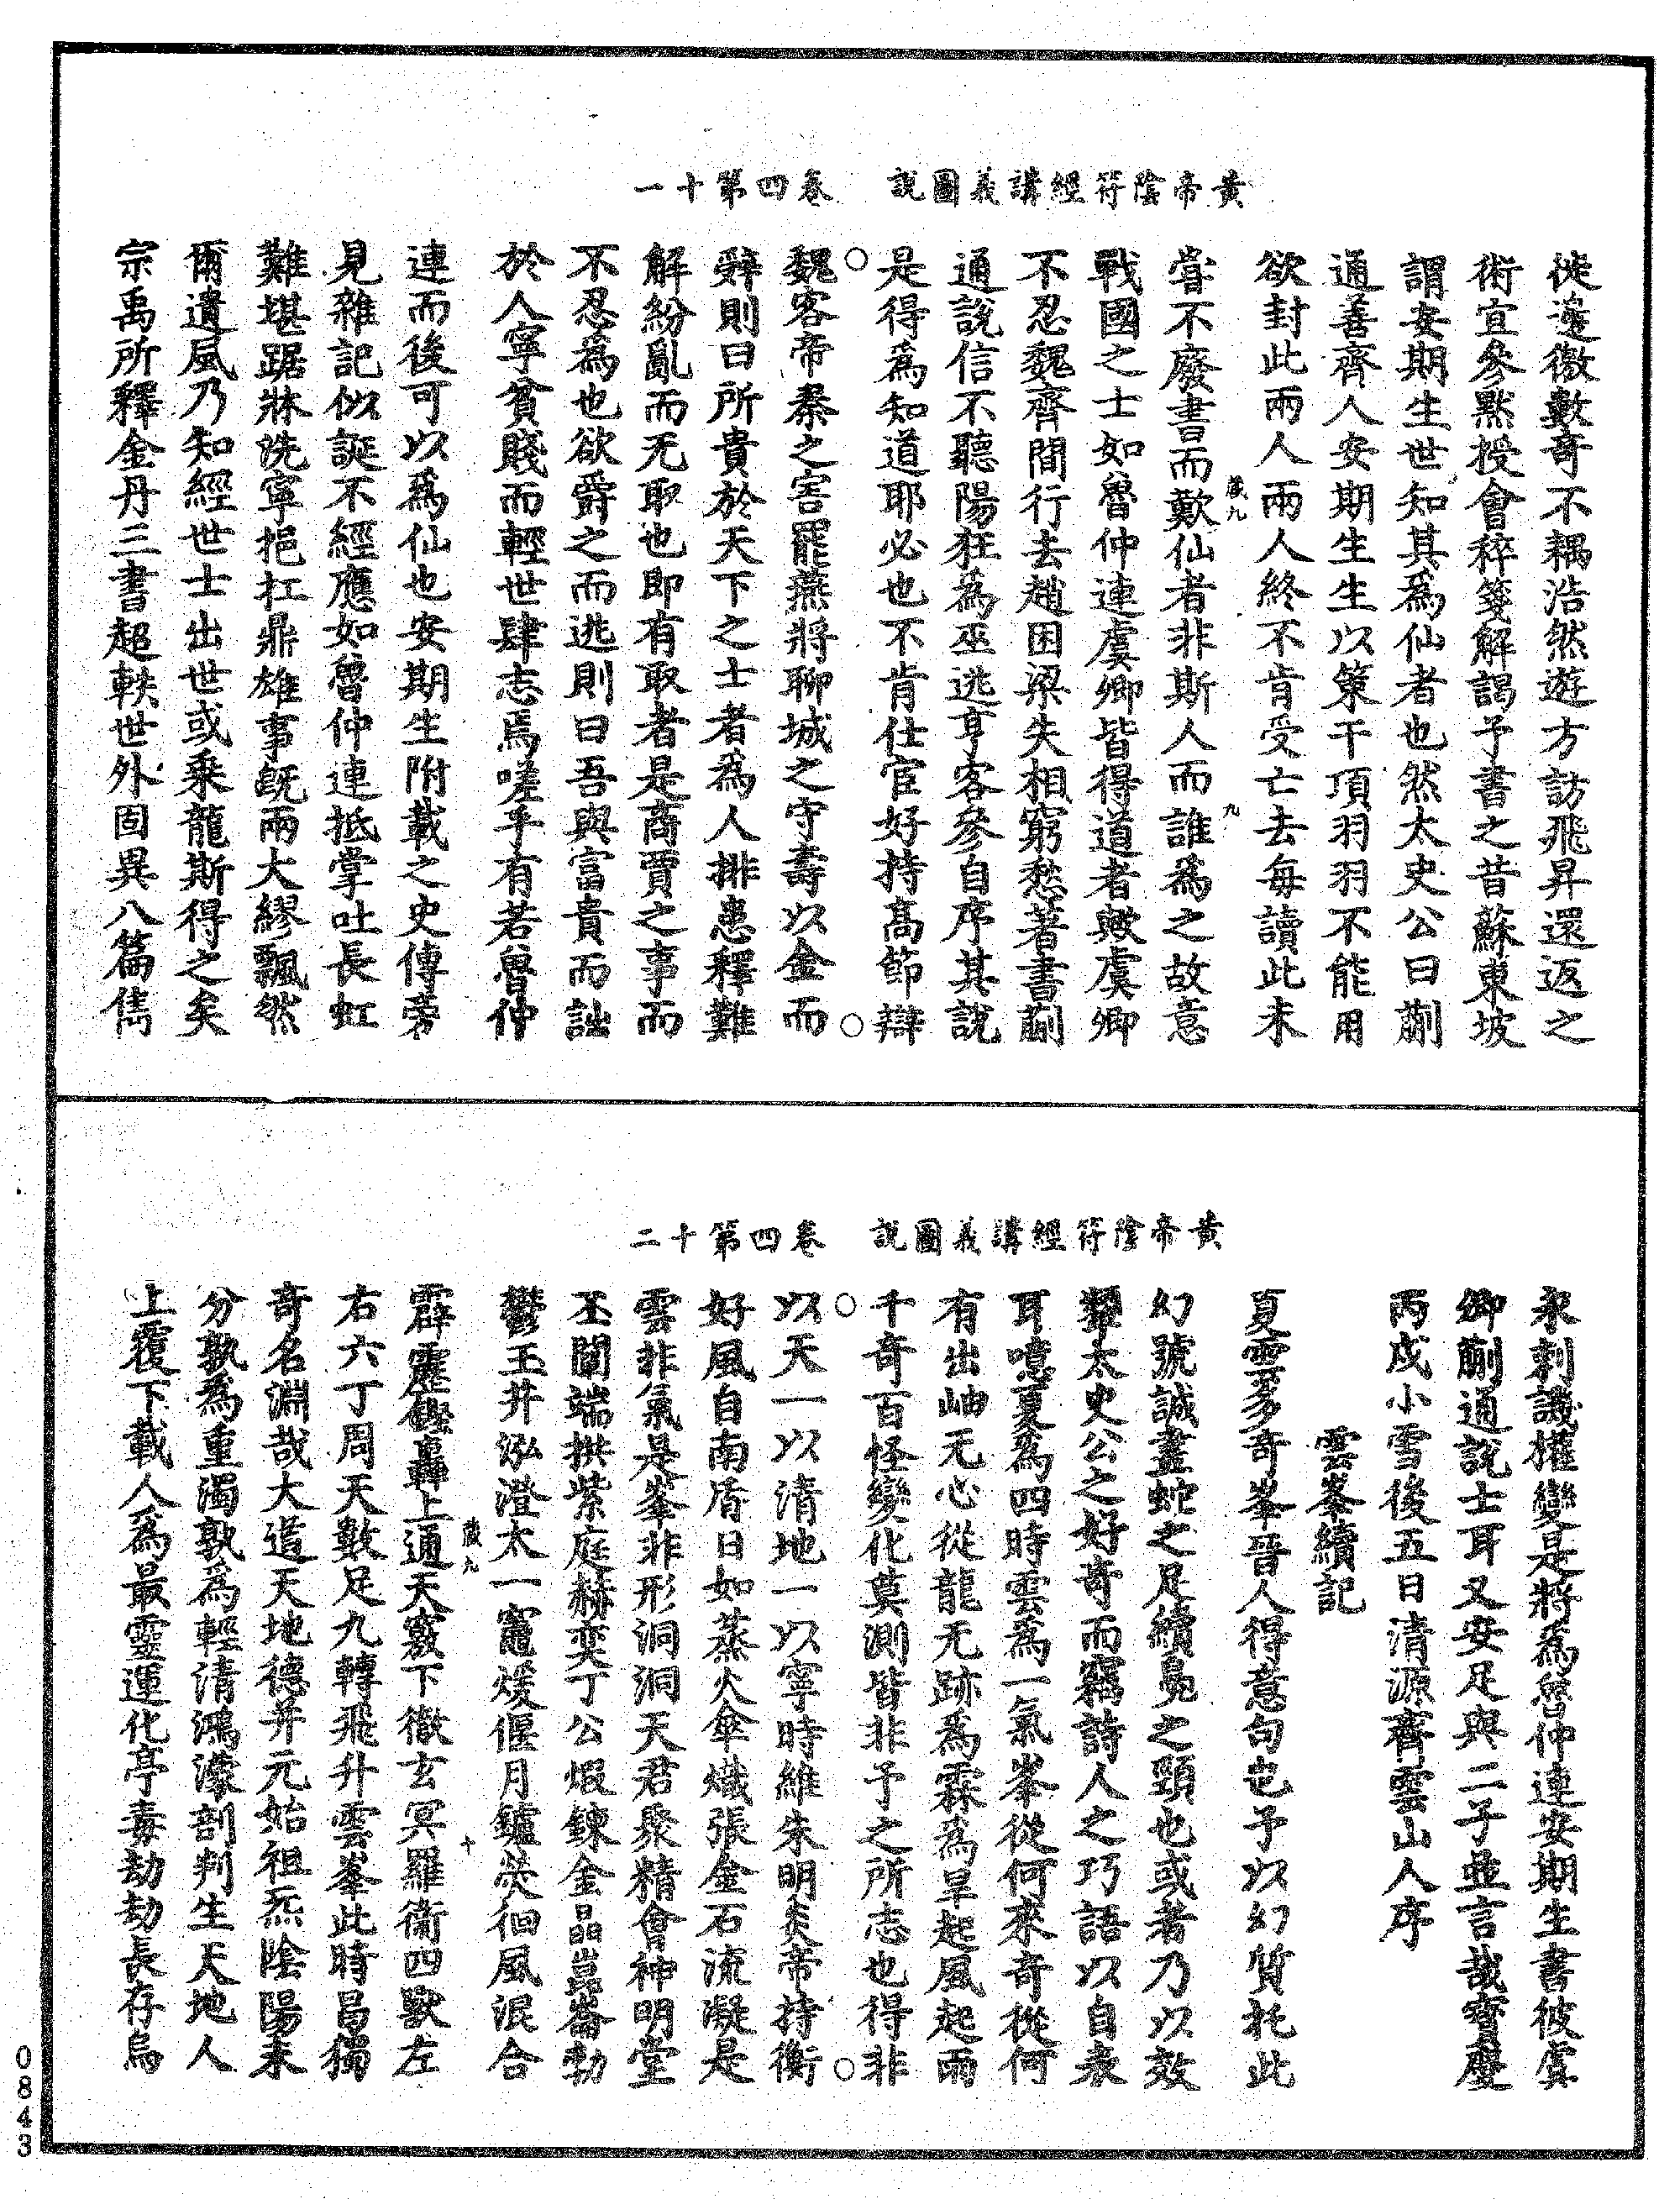 黃帝陰符經講義圖說　卷四第十一
徙邊徼數奇不耦浩然遊方訪飛昇還返之
術宜參點授會稡箋解謁予書之昔蘇東坡
謂安期生世知其爲仙者也然太史公曰蒯
通善齊人安期生生以策干項羽羽不能用
欲封此兩人兩人終不肯受亡去每讀此未
嘗不廢書而歎仙者非斯人而誰爲之故意
戰國之士如魯仲連虞卿皆得道者歟虞卿
不忍魏齊間行去趙困梁失相窮愁著書蒯
通說信不聽陽狂爲巫逃亨客參自序其說
是得爲知道耶必也不肯仕宦好持高節辯
魏客帝秦之害罷燕將聊城之守壽以金而
辭則曰所貴於天下之士者爲人排患釋難
解紛亂而无取也即有取者是商賈之事而
不忍爲也欲爵之而逃則曰吾與富貴而詘
於人寧貧賤而輕世肆志焉嗟乎有若魯仲
連而後可以爲仙也安期生附載之史傳旁
見雜記似誕不經應如魯仲連抵掌吐長虹
難堪踞牀洗寧挹扛鼎雄事旣兩大繆飄然
爾遺風乃知經世士出世或乘龍斯得之矣
宗禹所釋金丹三書超軼世外固異八篇雋
黃帝陰符經講義圖說　卷四第十二
永刺譏權變是將爲魯仲連安期生書彼虞
卿蒯通說士耳又安足與二子並言哉寶慶
丙戌小雪後五日清源齊雲山人序
雲峯續記
夏雲多奇峯晉人得意句也予以幻質托此
幻號誠畫蛇之足續鳧之頸也或者乃以效
顰太史公之好奇而竊詩人之巧語以自表
耳噫夏爲四時雲爲一氣峯從何來奇從何
有出岫无心從龍无跡爲霖爲旱起風起雨
千奇百怪變化莫測皆非予之所志也得非
以天一以清地一以寧時維朱明炎帝持衡
好風自南盾日如蒸火傘熾張金石流凝是
雲非氣是峯非形洞洞天君聚精會神明堂
丕闡端拱紫庭赫奕丁公煅鍊金晶崑崙勃
鬱玉井泓澄太一竈煖偃月鑪熒徊風混合
霹靂鏗轟上通天竅下徹玄冥羅衞四獸左
右六丁周天數足九轉飛升雲峯此時昌獨
奇名淵哉大道天地德并元始祖炁陰陽未
分孰爲重濁孰爲輕清鴻濛剖判生天地人
上覆下載人爲最靈運化亭毒劫劫長存烏
藏九
九
藏九
十
0843